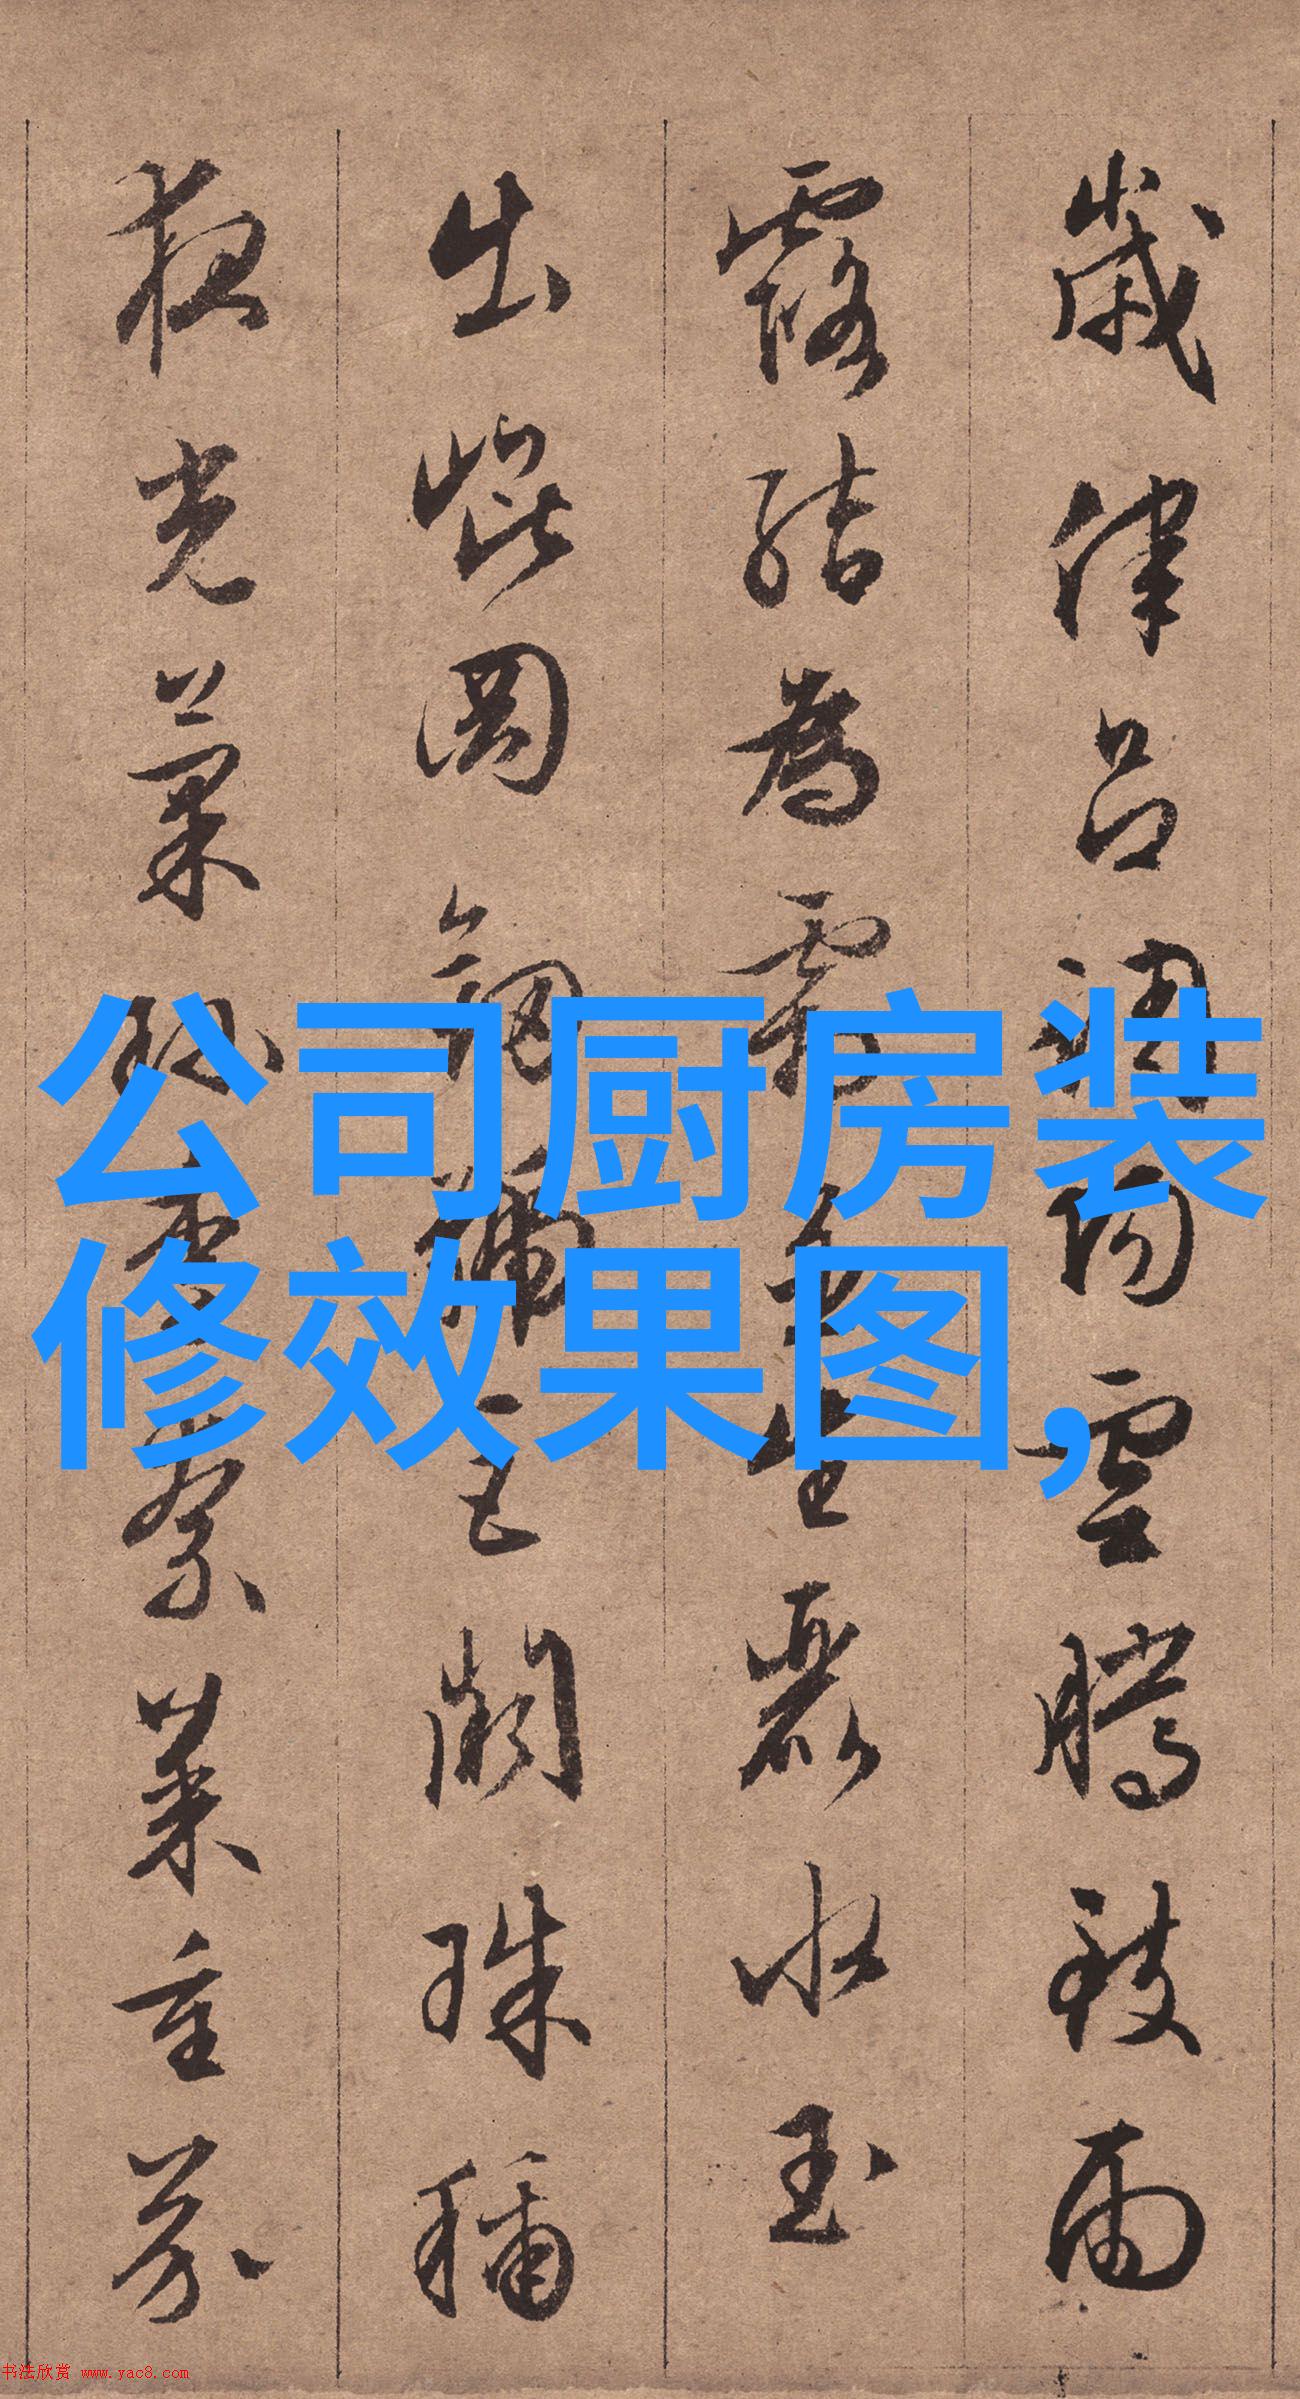 歲律呂調陽雲騰致雨
露結為霜金生麗水玉
出崐岡劍號巨闕珠稱
夜光菓珍李柰菜重芥
公司厨房装
修效果图,
书法欣赏 www.yac8.com